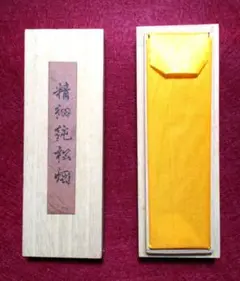 精細純松烟